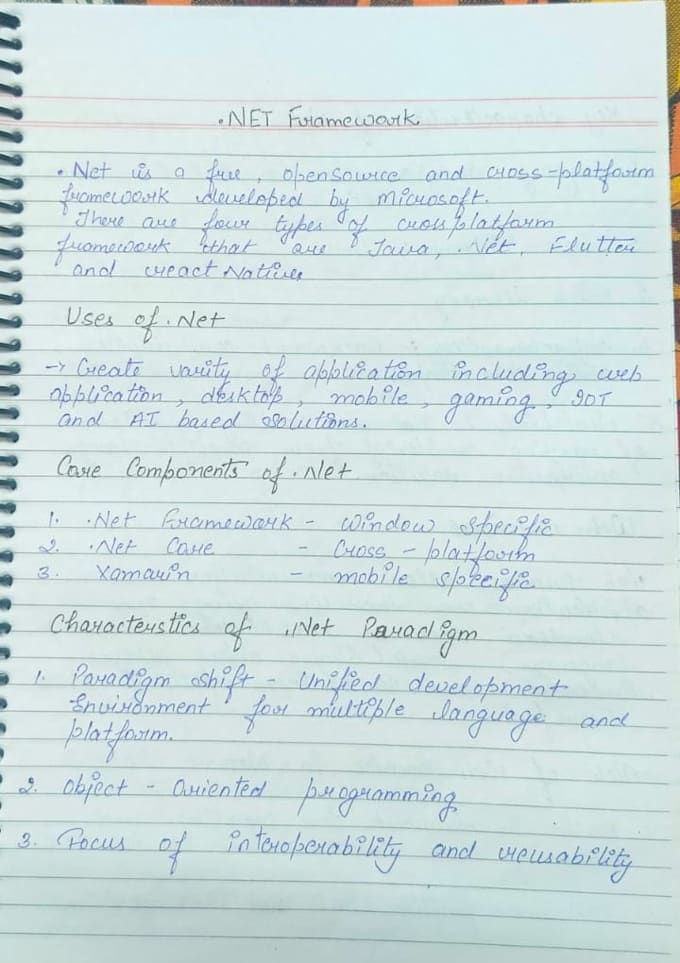 .NET Framework
.Net is a free, opensource and cross-platform
framework developed by microsoft.
There are four types of crossplatform
framework that are Java, .Net, Flutter
and react Native
Uses of .Net
→ Create varity of application including web
application, desktop, mobile, gaming, IOT
and AI based solutions.
Core Components of .Net
1. .Net Framework - window specific
2. .Net Core - Cross-platform
3. Xamarin - mobile specific
Characterstics of .Net Paradigm
1. Paradigm shift - Unified development
Environment for multiple language and
platform.
2. Object - Oriented programming
3. Focus of interoperability and reusability